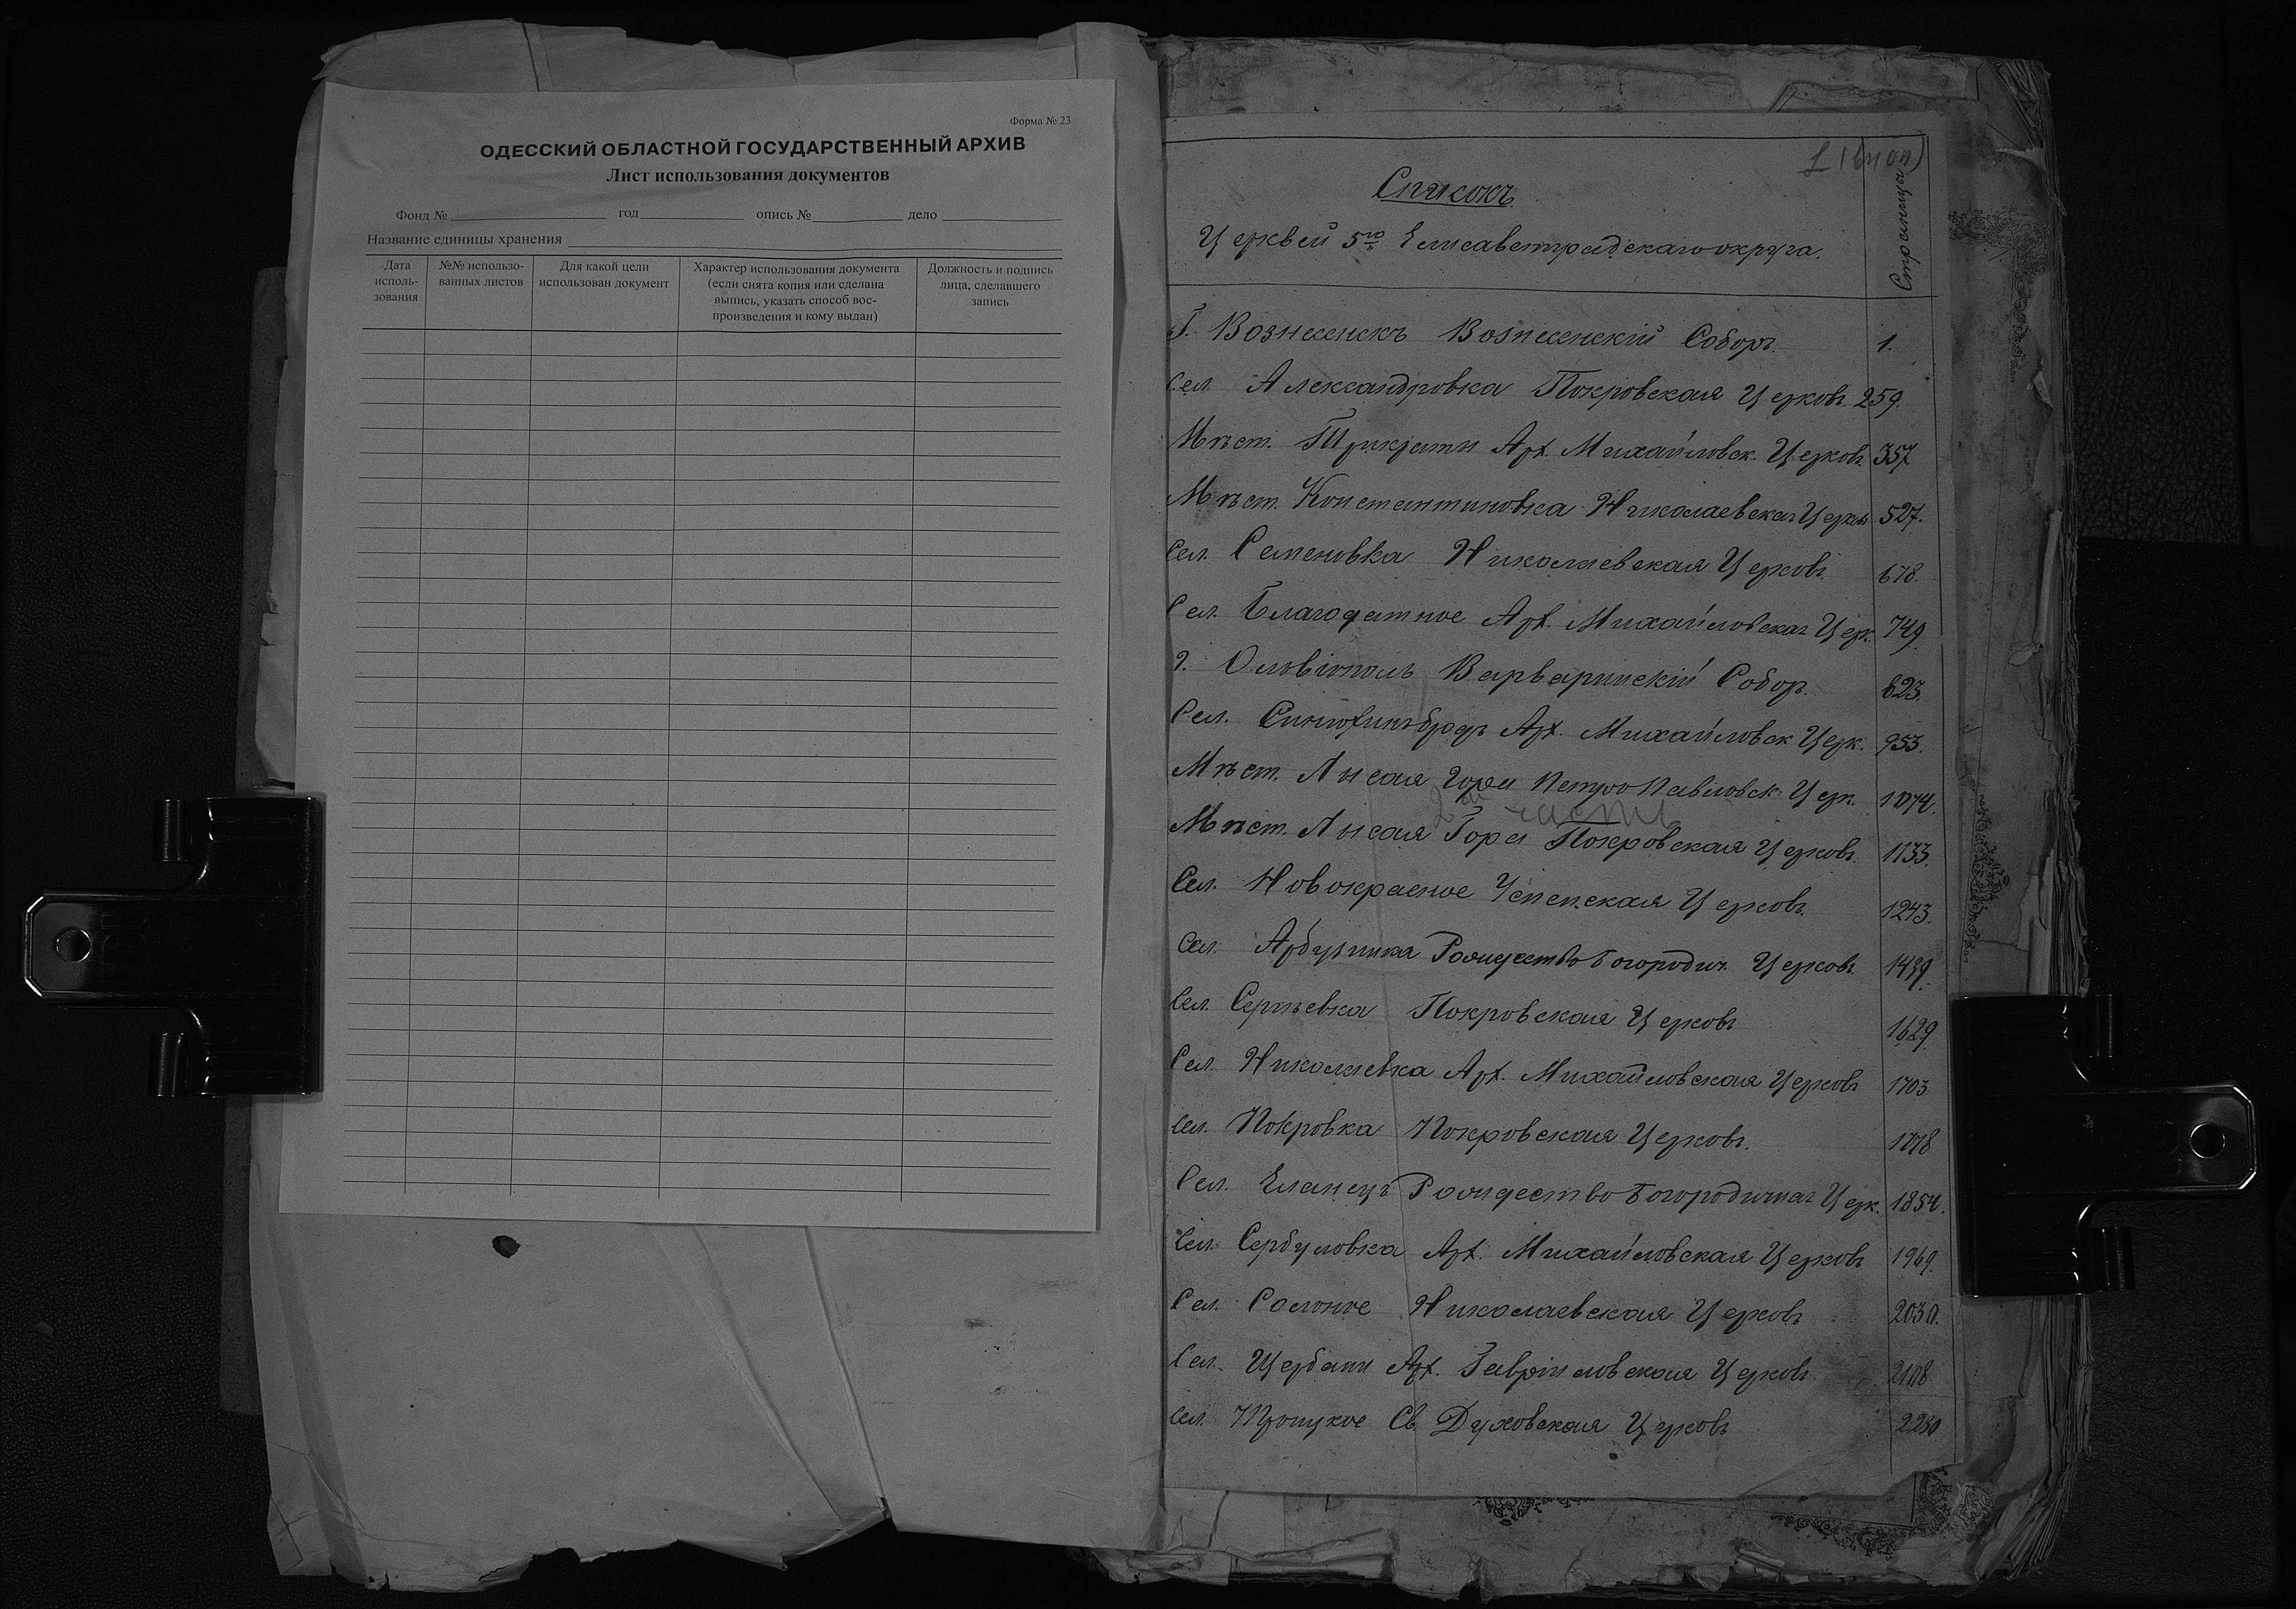 Форма № 23
ОДЕССКИЙ ОБЛАСТНОЙ ГОСУДАРСТВЕННЫЙ АРХИВ
Лист использования документов
Фонд № год опись № дело
Название единицы хранения
Дата исполь-зования
№№ использо-ванных листов
Для какой цели использован документ
Характер использования документа (если снята копия или сделана выпись, указать способ вос-произведения и кому выдан)
Должность и подпись лица, сделавшего запись
Списокъ
Церквей 5го Елисаветградскаго округа.
Страницы
Г. Вознесенскъ Вознесенскій Соборъ. 1.
Сел. Александровка Покровская Церковь. 259.
Мѣст. Трикраты Арх. Михайловск. Церковь. 357
Мѣст. Константиновка Николаевская Церковь 527.
Сел. Семеновка Николаевская Церковь. 678.
Сел. Благодатное Арх. Михайловская Церк. 749
г. Ольвіополь Варваринскій Соборъ. 823.
Сел. Синюхинъ бродъ Арх. Михайловск Церк. 953.
Мѣст. Лысая Гора Петро Павловск. Церк. 1074.
2ая часть
Мѣст. Лысая Гора Покровская Церковь. 1133.
Сел. Новокрасное Успенская Церковь. 1243.
Сел. Арбузинка Рождество Богородич. Церковь. 1439.
Сел. Сергѣевка Покровская Церковь 1629
Сел. Николаевка Арх. Михайловская Церковь 1703
Сел. Покровка Покровская Церковь. 1778
Сел. Еланецъ Рождество Богородичная Церк. 1854.
Сел. Сербуловка Арх. Михайловская Церковь 1969.
Сел. Солоное Николаевская Церковь 2030.
Сел. Щербани Арх. Гавріиловская Церковь 2108
Сел. Троицкое Св. Духовская Церковь